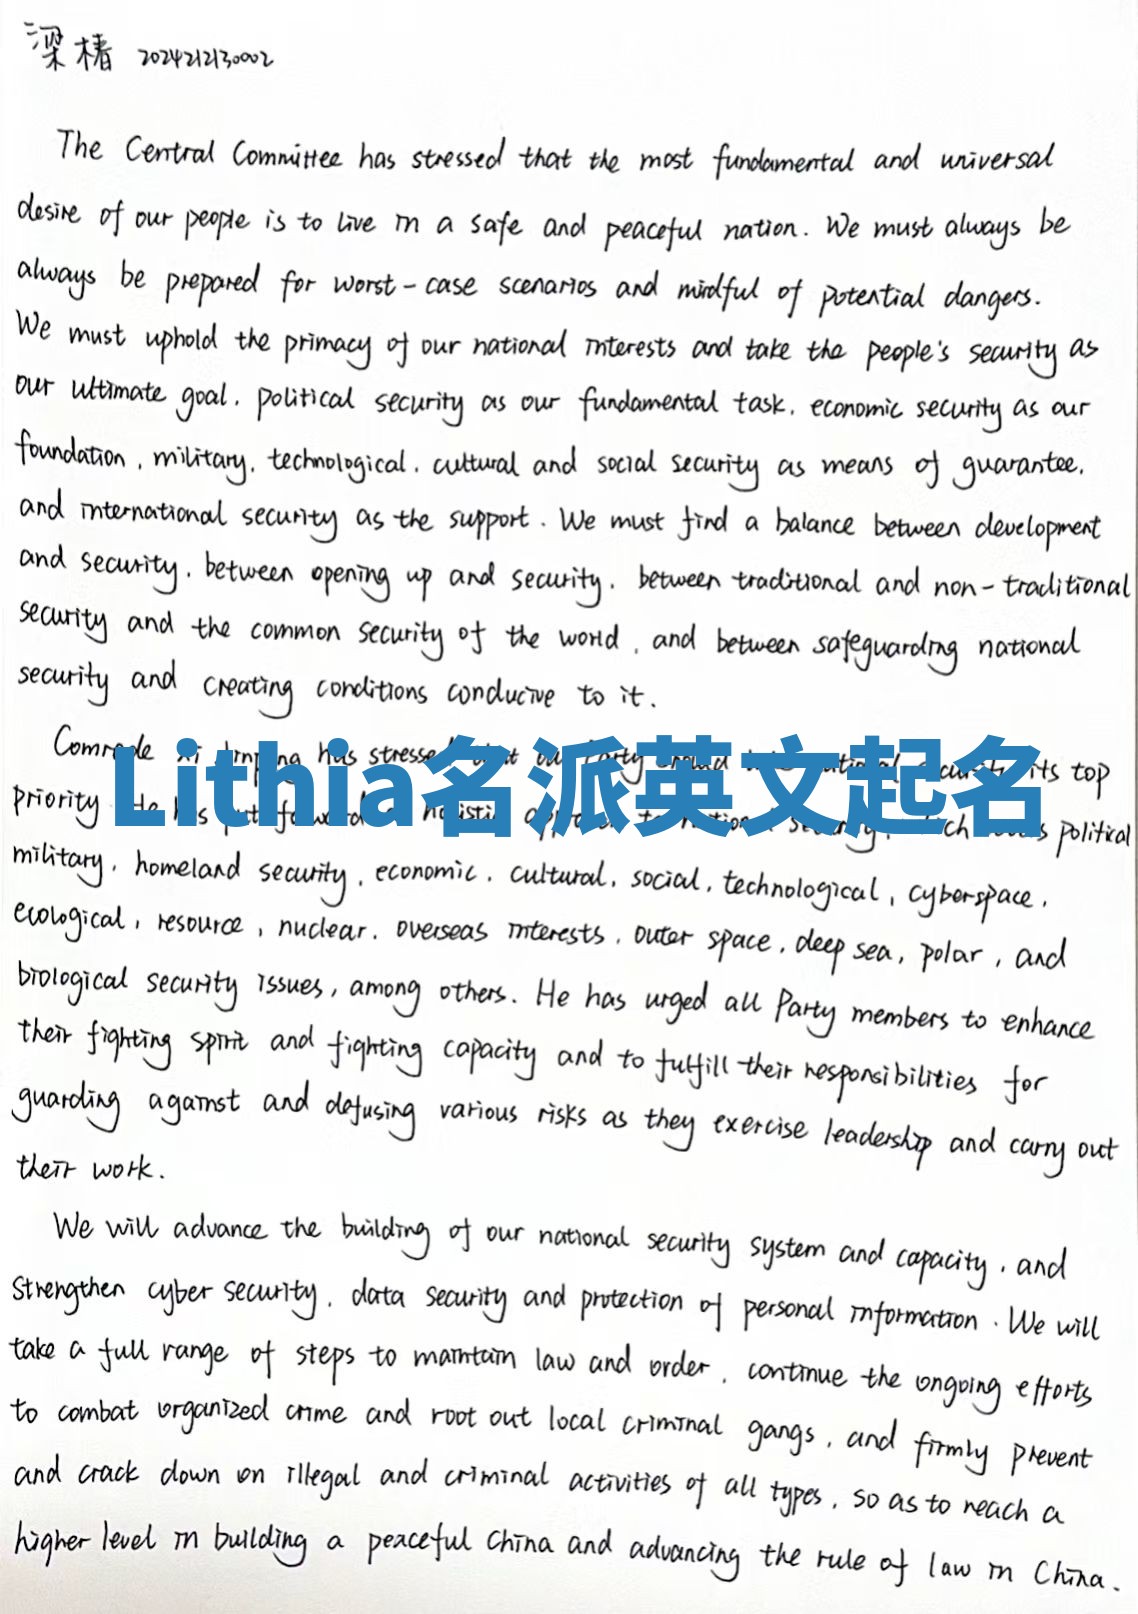 梁椿 2024212130002
The Central Committee has stressed that the most fundamental and universal
desire of our people is to live in a safe and peaceful nation. We must always be
always be prepared for worst-case scenarios and mindful of potential dangers.
We must uphold the primacy of our national interests and take the people's security as
our ultimate goal, political security as our fundamental task, economic security as our
foundation, military, technological, cultural and social security as means of guarantee,
and international security as the support. We must find a balance between development
and security, between opening up and security, between traditional and non-traditional
security and the common security of the world, and between safeguarding national
security and creating conditions conducive to it.
Comrade Xi Jinping has stressed that our Party should national security its top
Lithia名派英文起名
priority He has put forward a holistic approach to national security, which covers political
military, homeland security, economic, cultural, social, technological, cyberspace,
ecological, resource, nuclear, overseas interests, outer space, deep sea, polar, and
biological security issues, among others. He has urged all Party members to enhance
their fighting spirit and fighting capacity and to fulfill their responsibilities for
guarding against and defusing various risks as they exercise leadership and carry out
their work.
We will advance the building of our national security system and capacity, and
strengthen cyber security, data security and protection of personal information. We will
take a full range of steps to maintain law and order, continue the ongoing efforts
to combat organized crime and root out local criminal gangs, and firmly prevent
and crack down on illegal and criminal activities of all types, so as to reach a
higher level in building a peaceful China and advancing the rule of law in China.